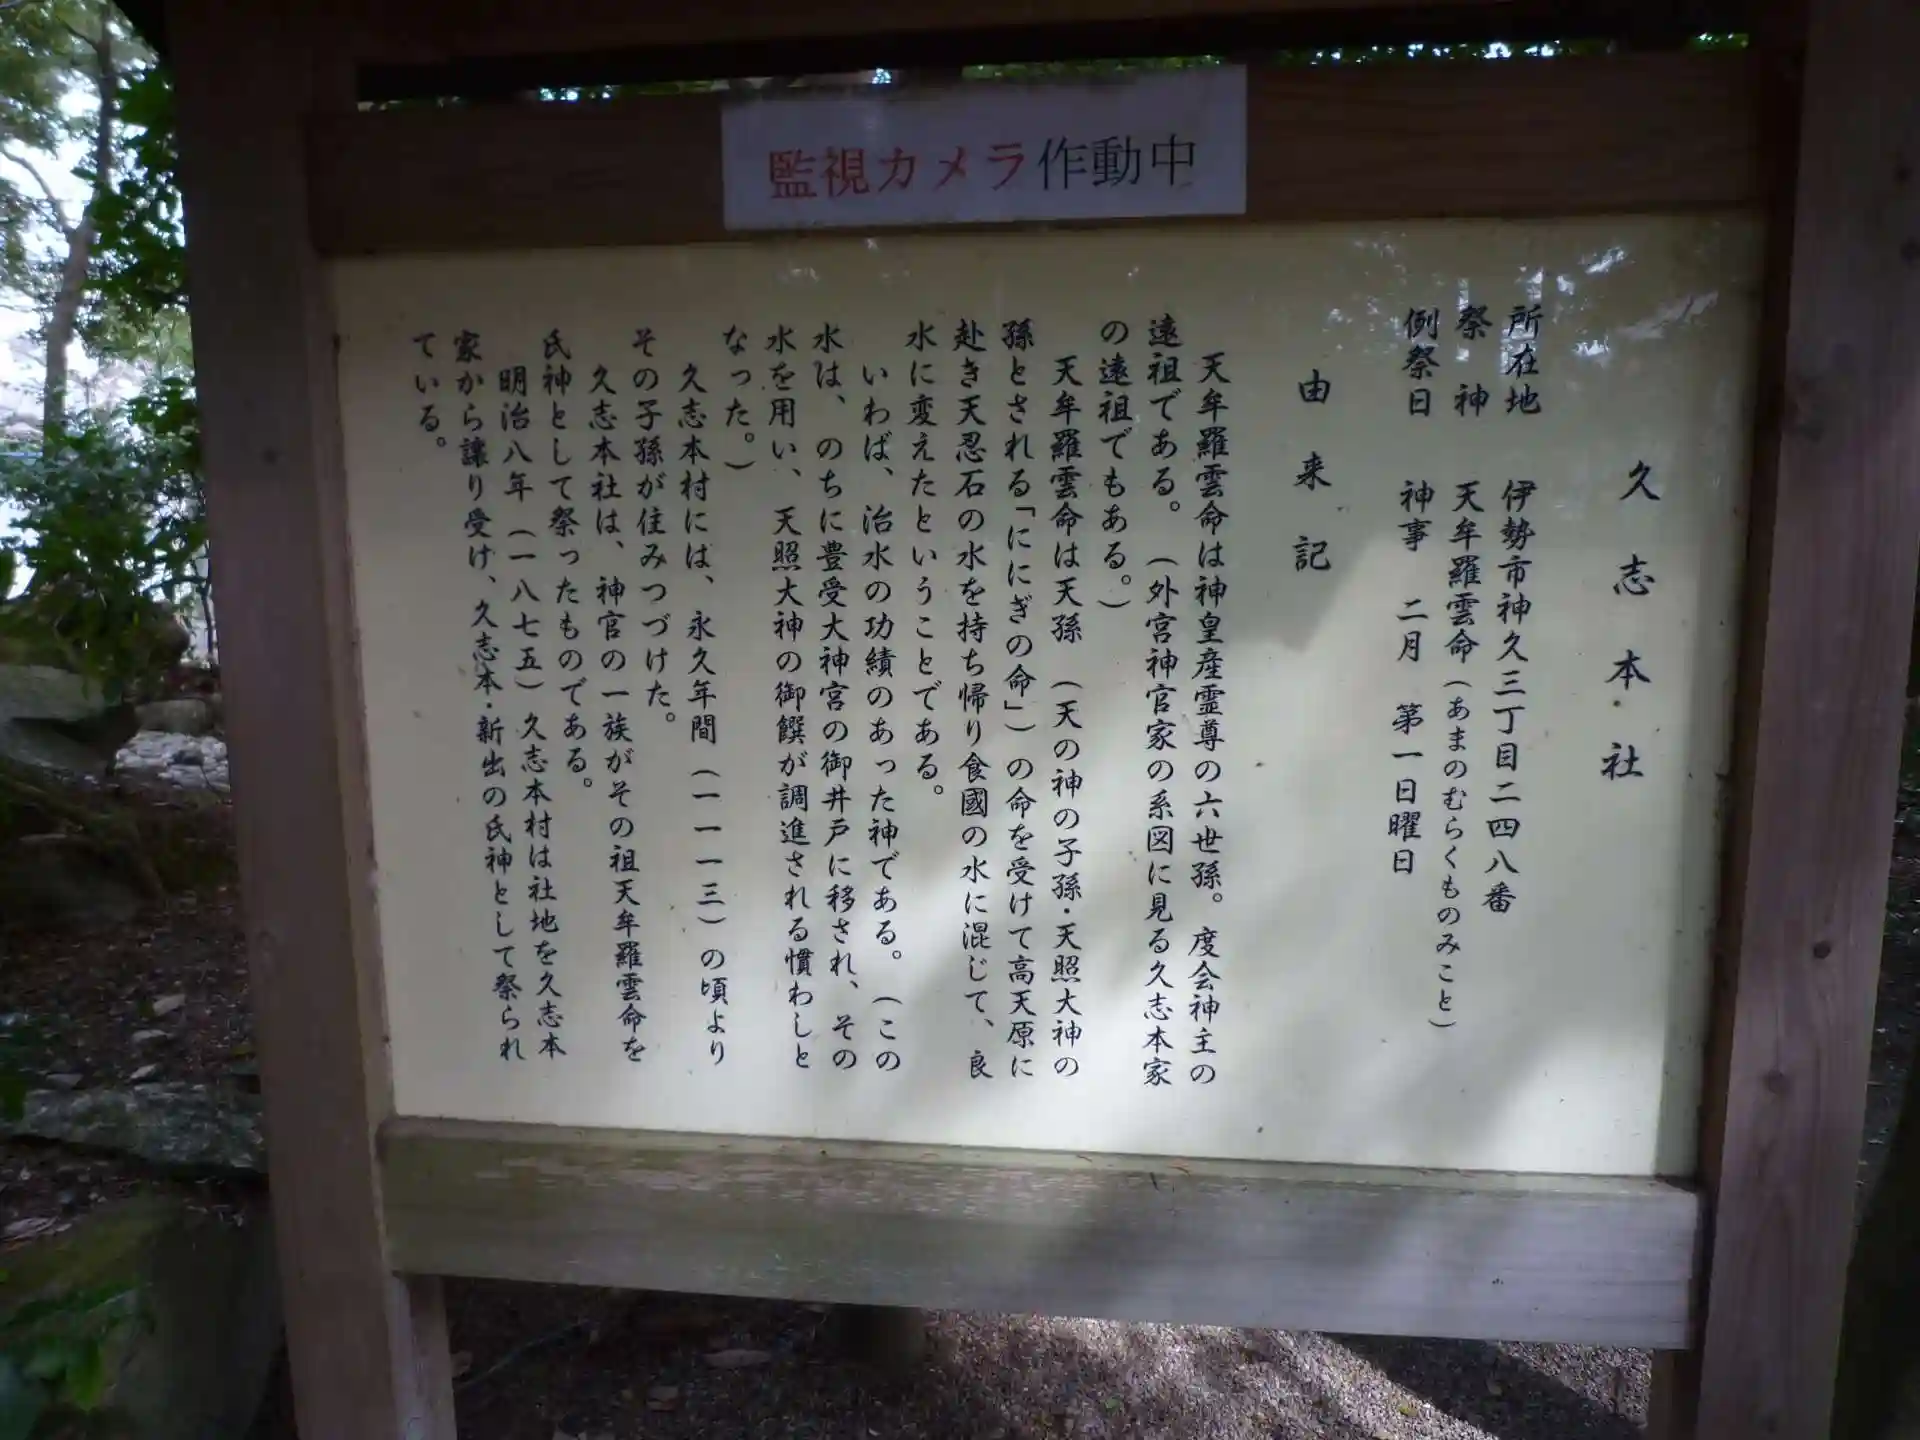 監視カメラ作動中
久志本社
所在地 伊勢市神久三丁目二四八番
祭神 天牟羅雲命(あまのむらくものみこと)
例祭日 神事 二月 第一日曜日
由来記
天牟羅雲命は神皇産霊尊の六世孫。度会神主の
遠祖である。(外宮神官家の系図に見る久志本家
の遠祖でもある。)
天牟羅雲命は天孫(天の神の子孫・天照大神の
孫とされる「ににぎの命」)の命を受けて高天原に
赴き天忍石の水を持ち帰り食國の水に混じて、良
水に変えたということである。
いわば、治水の功績のあった神である。(この
水は、のちに豊受大神宮の御井戸に移され、その
水を用い、天照大神の御饌が調進される慣わしと
なった。)
久志本村には、永久年間(一一一三)の頃より
その子孫が住みつづけた。
久志本社は、神官の一族がその祖天牟羅雲命を
氏神として祭ったものである。
明治八年(一八七五)久志本村は社地を久志本
家から譲り受け、久志本・新出の氏神として祭られ
ている。